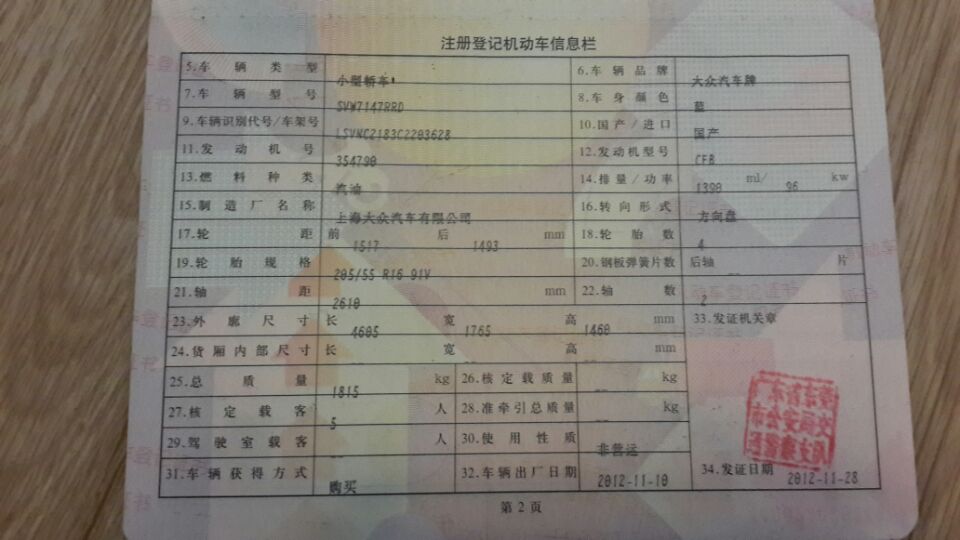 注册登记机动车信息栏
5.车辆类型 小型轿车 6.车辆品牌 大众汽车牌
7.车辆型号 SVW7147RRD 8.车身颜色 蓝
9.车辆识别代号/车架号 LSVNC2183C2203628 10.国产/进口 国产
11.发动机号 354790 12.发动机型号 CFB
13.燃料种类 汽油 14.排量/功率 1390 ml/ 96 kw
15.制造厂名称 上海大众汽车有限公司 16.转向形式 方向盘
17.轮距 前 1517 后 1493 mm 18.轮胎数 4
19.轮胎规格 205/55 R16 91V 20.钢板弹簧片数 后轴 片
21.轴距 2610 mm 22.轴数 2
23.外廓尺寸 长 4605 宽 1765 高 1460 mm 33.发证机关章
24.货厢内部尺寸 长 宽 高 mm
25.总质量 1815 kg 26.核定载质量 kg
27.核定载客 5 人 28.准牵引总质量 kg
29.驾驶室载客 人 30.使用性质 非营运
31.车辆获得方式 购买 32.车辆出厂日期 2012-11-10 34.发证日期 2012-11-28
第2页